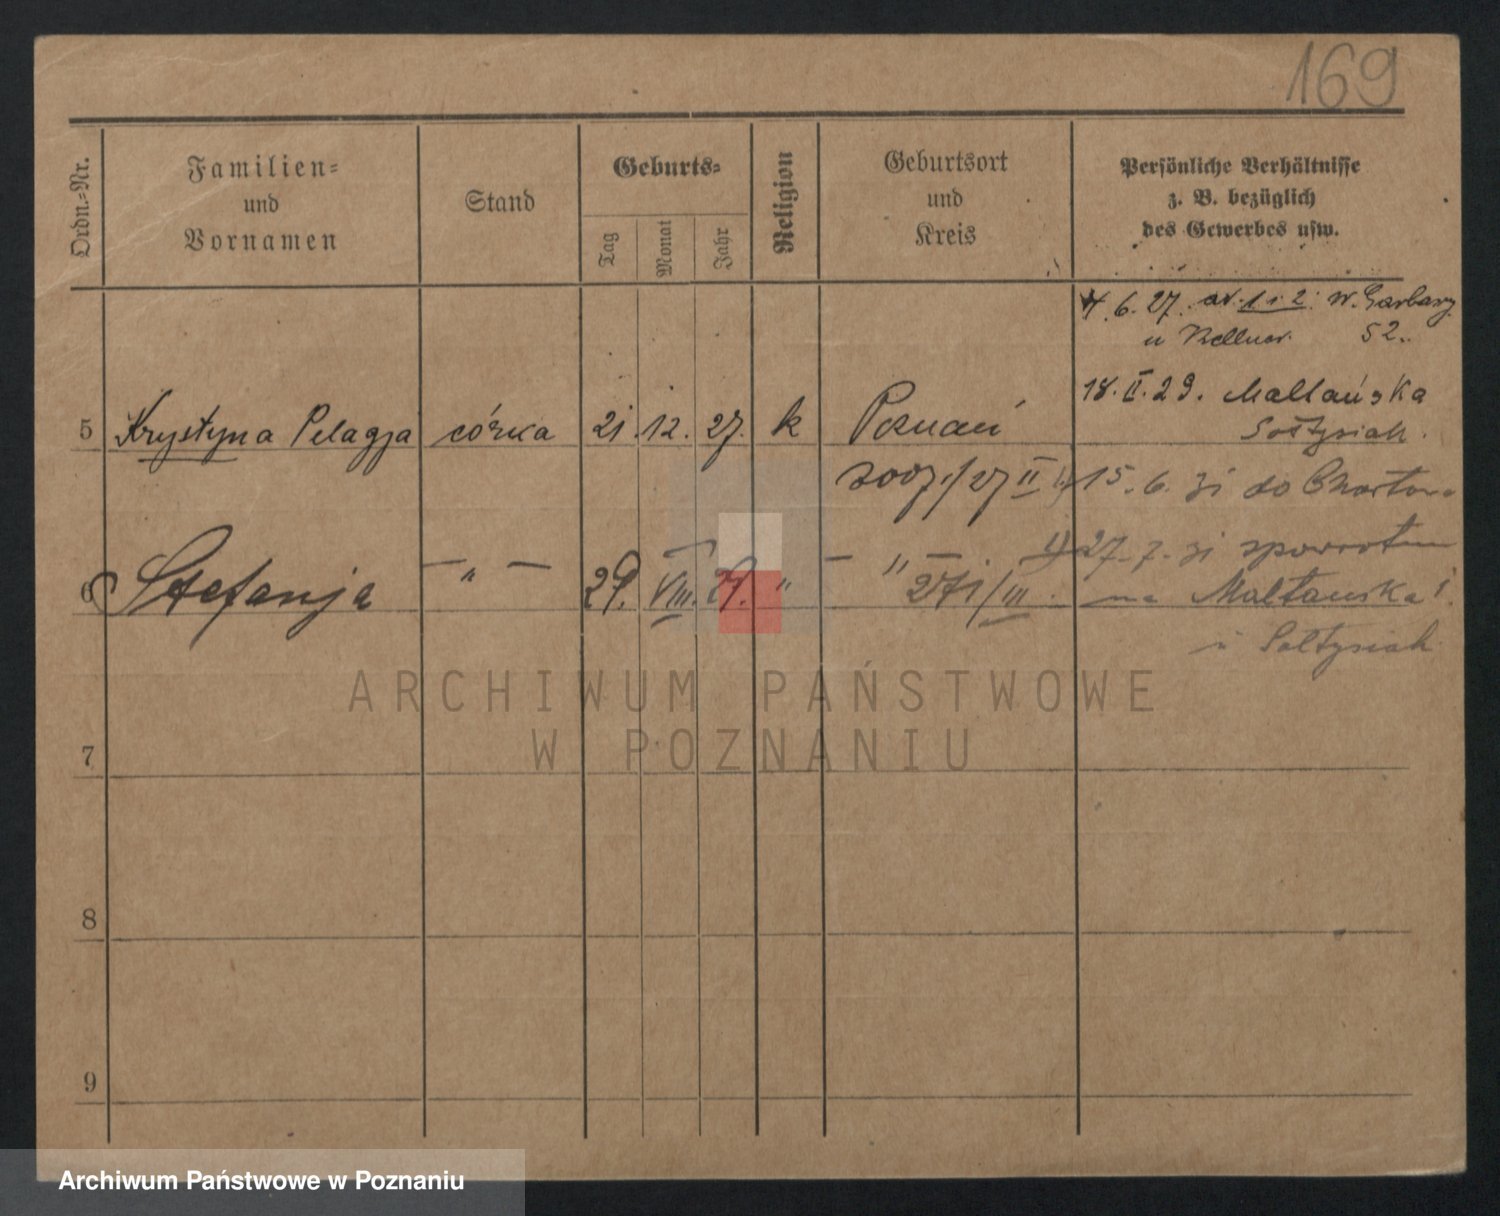 169
Ordn.-Nr.
Familien-
und
Vornamen
Stand
Geburts-
Tag
Monat
Jahr
Religion
Geburtsort
und
Kreis
Persönliche Verhältnisse
z. B. bezüglich
des Gewerbes usw.
4. 6. 27. od. 1 i 2. W. Garbary
u Kellner. 52.
18. II. 29. Maltańska
Sołtysiak.
5 Krystyna Pelagja córka 21. 12. 27. k Poznań
15. 6. 31 do Chartowa
6 Stefanja — " — 29. VIII. 29. " — " —
271/III
27. 7. 31 spowrotem
na Maltańska 1.
u Sołtysiak
7
8
9
ARCHIWUM PAŃSTWOWE
W POZNANIU
Archiwum Państwowe w Poznaniu